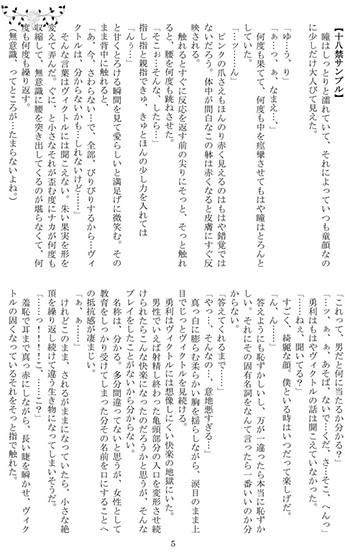 【十八禁サンプル】
瞳はしっとりと濡れていて、それによっていつも童顔なの
に少しだけ大人びて見えた。
「ゆ…うり」
「ぁ…っ、ぁ、なまえ…」
何度も果てて、何度も中を痙攣させてもはや瞳はとろんと
していた。
「…ッ……ん」
ピンクの爪さえもほんのり赤く見えるのはもはや錯覚では
ないだろう。体中が面白なこの躰は赤くなると皮膚にすぐ反
映される。
触れるとすぐに反応を返す前の尖りにそっと、そっと触れ
ると、腰を何度も跳ねさせた。
「そこぉ…そんな、したら…」
指し指と親指できゅ、きゅとほんの少し力を入れては
「んぅ…」
と甘くとろける瞬間を見て愛らしいと満足げに微笑む。その
まま背中に触れると、
「あ、今、さわらない…で、全部、びりびりするから…ヴィ
クトルは、分からないかも…しれないけど……」
そんな言葉はヴィクトルには聞こえない。朱い果実を形を
変えて弄んだ。ぐに、と小さなそれが歪む度にナカが何度も
収縮して、無意識に腰を突き出してくるのが堪らなくて、何
度も何度も繰り返す。
（無意識、ってところが…たまらないよね。）
「これって、男だと何に当たるか分かる？」
「…ッ、ぁ、あそば、ないで…くだ、さ…そこ、へんっ」
勇利はもはやヴィクトルの話は聞こえていなかった。
「……ねぇ、聞いてる？」
すごく、綺麗な顔。僕といる時はいつだって楽しげだ。
「ん、ん……」
答えようにも恥ずかしいし、万が一違ったら本当に恥ずか
しい、それにその固有名詞をなんて言ったら一番いいのか分
からない。
「答えてくれるまで……」
「やっ…、そんなの…、意地悪すぎる…」
真っ白に膨らむ柔らかい胸を揺らしながら、涙目のまま上
目でじっとヴィクトルを見続ける。
勇利はヴィクトルには想像しにくい快楽の地獄にいた。
男性でいえば射精し終わった亀頭部分の入口を変形させ続
けられたらこんな快楽になったのだろうと思うが、そんな
プレイをしたことがないから分からない。
名称は、分かる。多分間違ってないと思うが、女性として
教育をしっかり受けてしまった分その名前を口にすることへ
の抵抗感が凄まじい。
「ぁ、ぁ……」
けれどこのまま、されるがままになっていたら、小さな絶
頂を繰り返し続けて違う生き物になってしまいそうだ。
「……っ！！！！こ、……こ？」
羞恥で耳まで真っ赤にしながら、長い睫を瞬かせ、ヴィク
トルの固くなっているそれをそっと指で触れた。
5